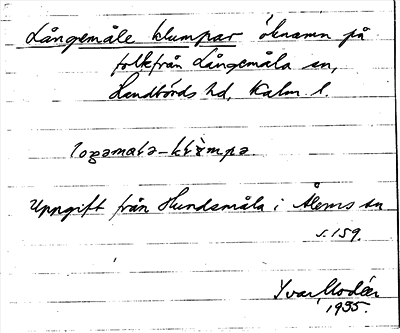 Långemåle klumpar öknamn på
folk från Långemåla sn,
Handbörds hd, Kalm. l.
Uppgift från Hundsmåla i Ålems sn
s. 159.
Ivar Modéer
1935.